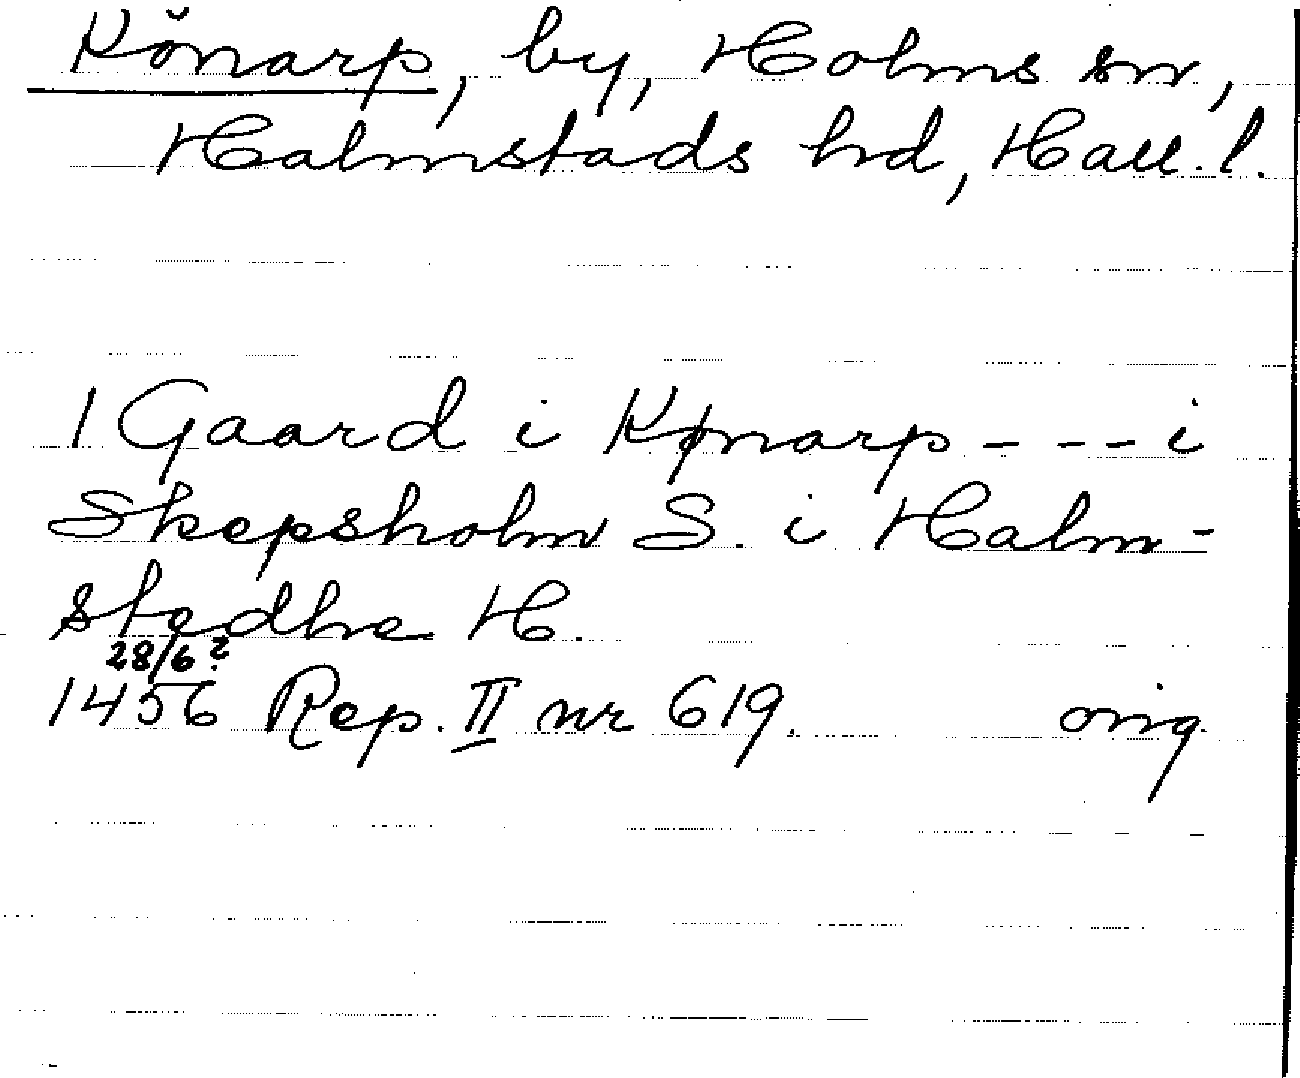 Könarp, by, Holms sn,
Halmstads hd, Hall. l.
1 Gaard i Kønarp - - - i
Skepsholm S. i Halm-
stedhe H.
28/6 ?
1456 Rep. II nr 619. orig.